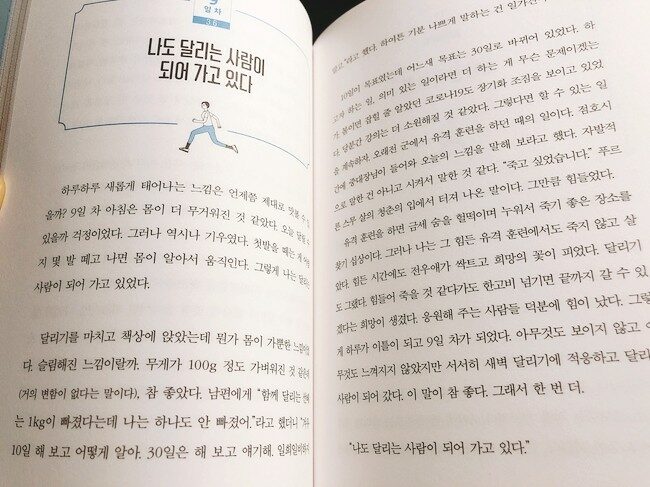 9
일 차
3.6
나도 달리는 사람이
되어 가고 있다
하루하루 새롭게 태어나는 느낌은 언제쯤 제대로 맛볼 수
을까? 9일 차 아침은 몸이 더 무거워진 것 같았다. 오늘 달릴 수
있을까 걱정이었다. 그러나 역시나 기우였다. 첫발을 떼는 게
지 몇 발 떼고 나면 몸이 알아서 움직인다. 그렇게 나는 달리는
사람이 되어 가고 있었다.
달리기를 마치고 책상에 앉았는데 뭔가 몸이 가뿐한 느낌이었
다. 슬림해진 느낌이랄까. 무게가 100g 정도 가벼워진 것 같은데
(거의 변함이 없다는 말이다), 참 좋았다. 남편에게 "함께 달리는
는 1kg이 빠졌다는데 나는 하나도 안 빠졌어."라고 했더니
10일 해 보고 어떻게 알아. 30일은 해 보고 얘기해. 일희일비하지
말고."라고 했다. 하여튼 기분 나쁘게 말하는 건
10일이 목표였는데 어느새 목표는 30일로 바뀌어 있었다. 하
고자 하는 일, 의미 있는 일이라면 더 하는 게 무슨 문제이겠는
가. 봄이면 잡힐 줄 알았던 코로나19도 장기화 조짐을 보이고 있었
다. 당분간 강의는 더 소원해질 것 같았다. 그렇다면 할 수 있는 일
을 계속하자. 오래전 군에서 유격 훈련을 하던 때의 일이다. 점호시
간에 중대장님이 들어와 오늘의 느낌을 말해 보라고 했다. 자발적
으로 말한 건 아니고 시켜서 말한 것 같다. "죽고 싶었습니다." 푸르
른 스무 살의 청춘의 입에서 터져 나온 말이다. 그만큼 힘들었다.
유격 훈련을 하면 금세 숨을 헐떡이며 누워서 죽기 좋은 장소를
찾기 십상이다. 그러나 나는 그 힘든 유격 훈련에서도 죽지 않고 살
았다. 힘든 시간에도 전우애가 싹트고 희망의 꽃이 피었다. 달리기
도 그랬다. 힘들어 죽을 것 같다가도 한고비 넘기면 끝까지 갈 수 있
겠다는 희망이 생겼다. 응원해 주는 사람들 덕분에 힘이 났다. 그렇
게 하루가 이틀이 되고 9일 차가 되었다. 아무것도 보이지 않고 아
무것도 느껴지지 않았지만 서서히 새벽 달리기에 적응하고 달리
사람이 되어 갔다. 이 말이 참 좋다. 그래서 한 번 더.
"나도 달리는 사람이 되어 가고 있다."